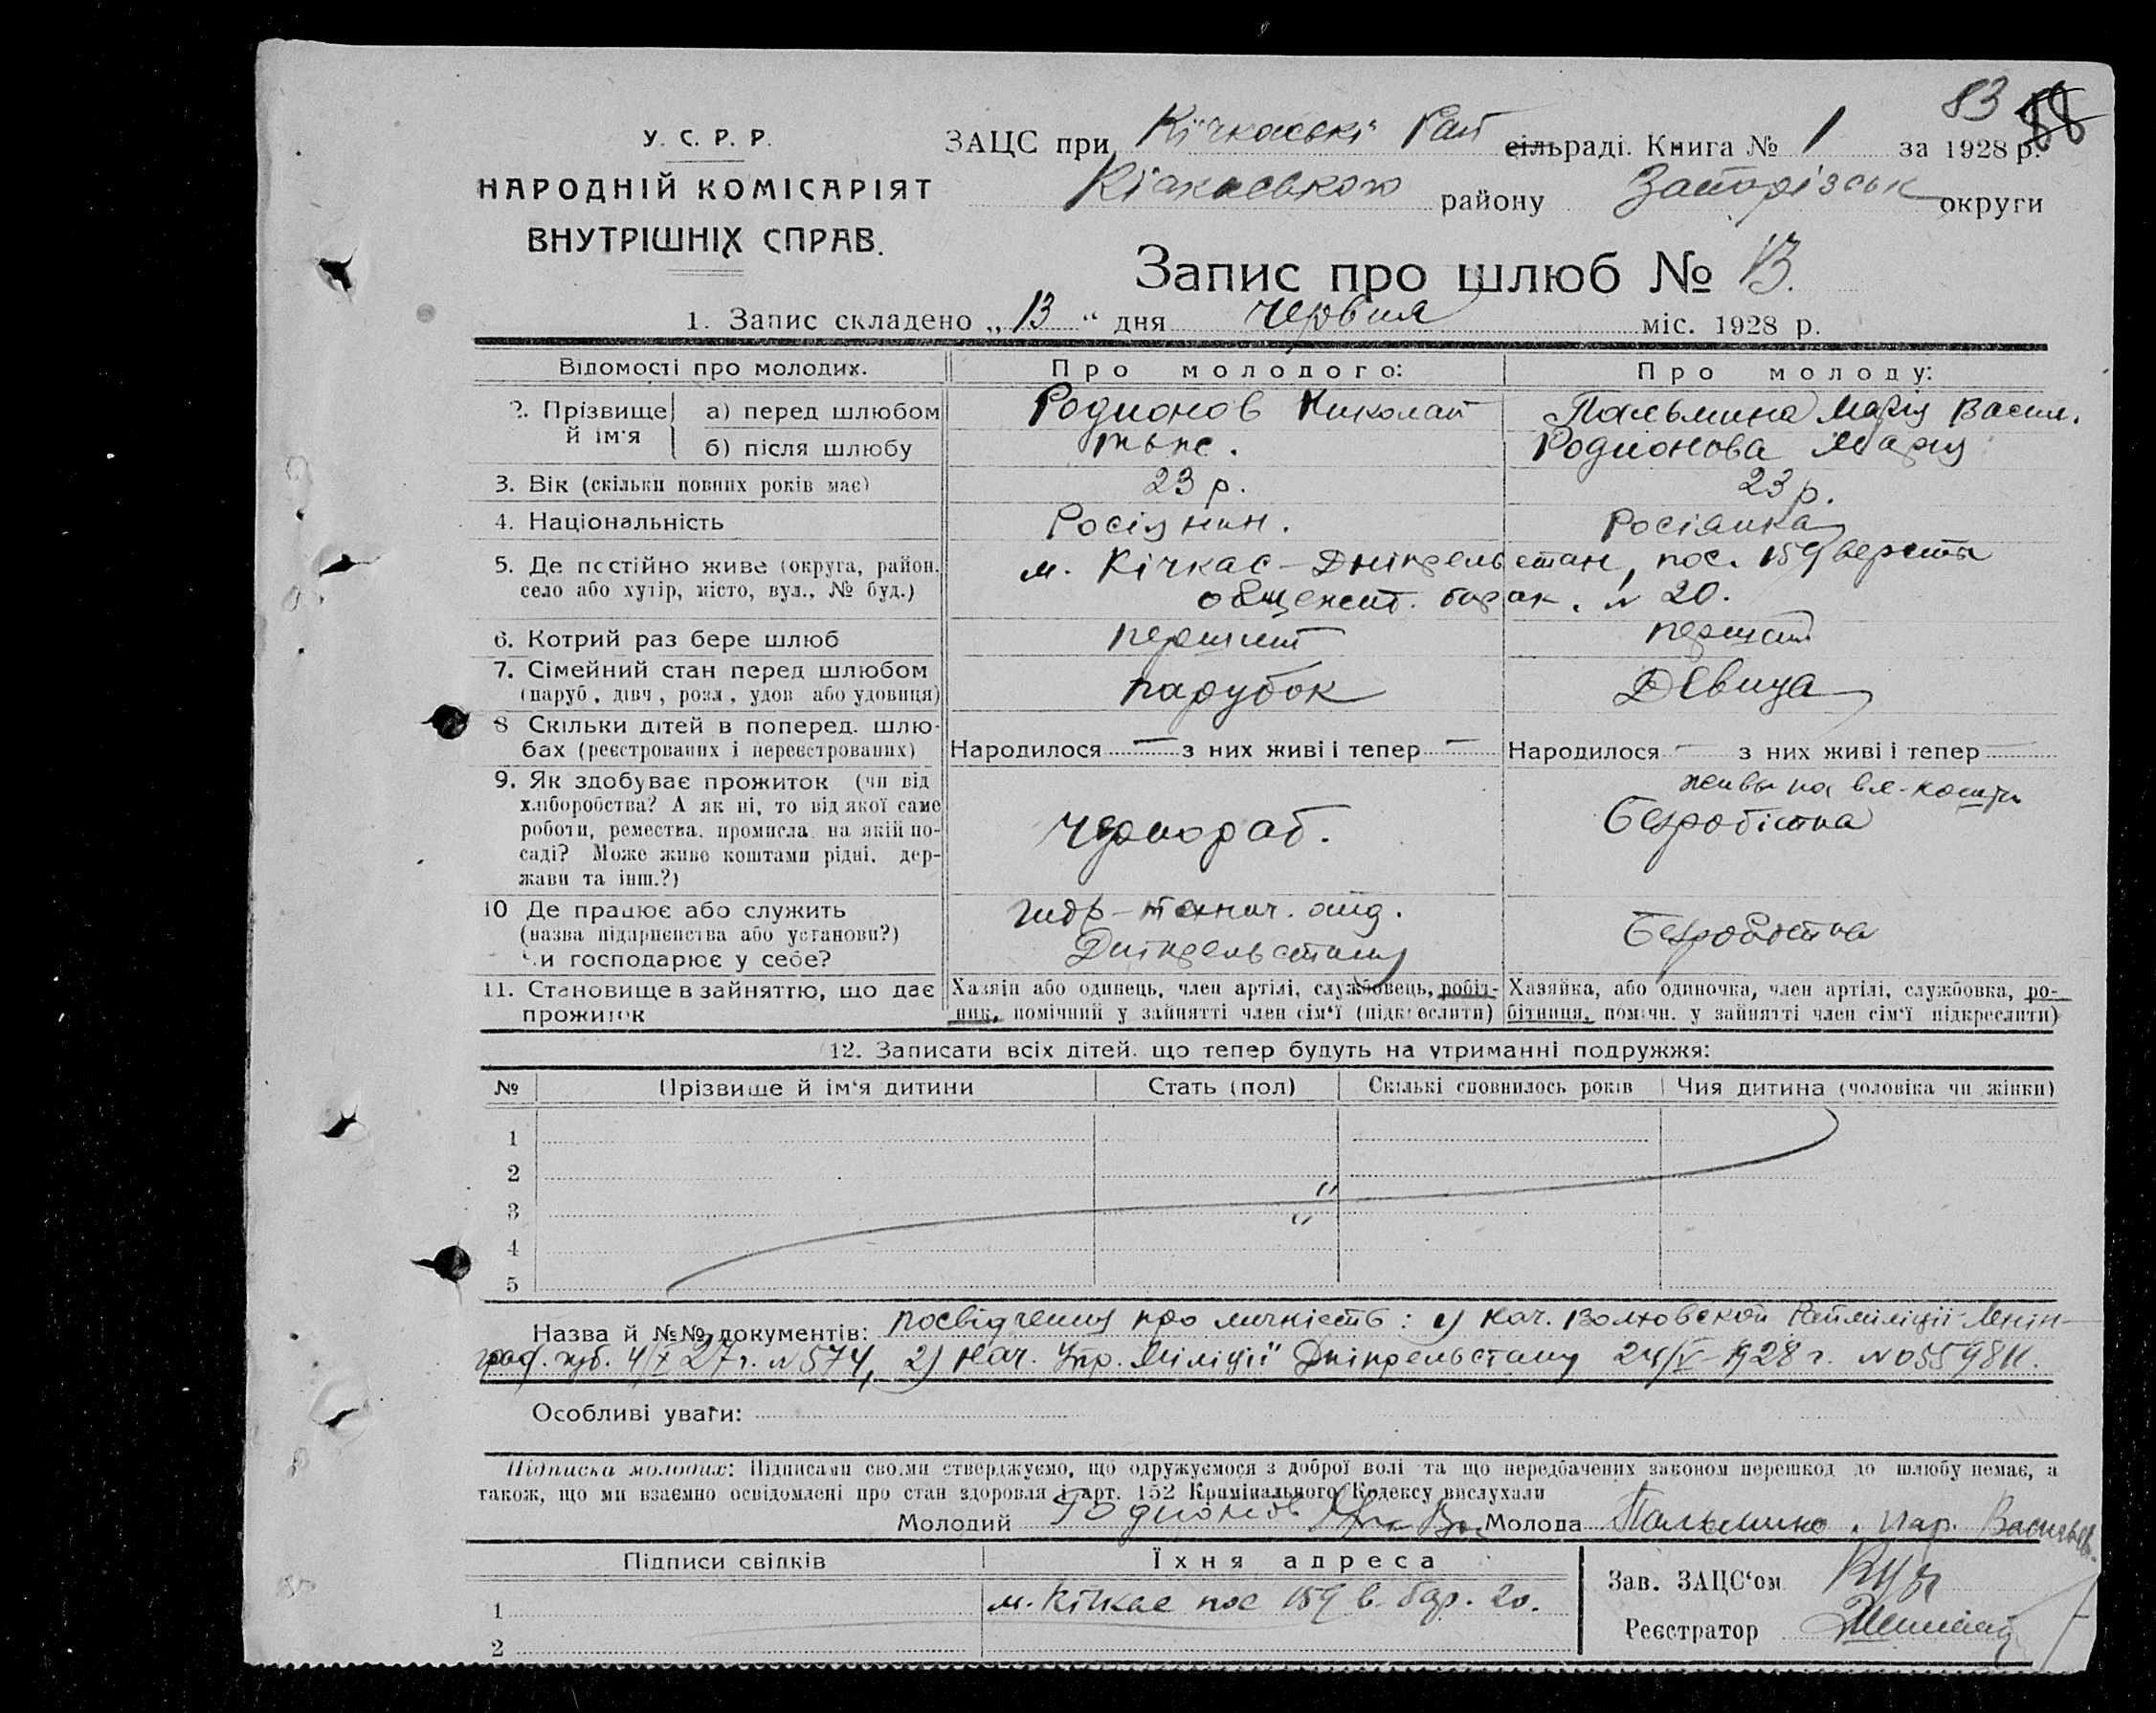 83 88
У. С. Р. Р.
НАРОДНІЙ КОМІСАРІЯТ
ВНУТРІШНІХ СПРАВ.
ЗАЦС при Кічкаські Рай сільраді. Книга № 1 за 1928 р.
Кічкаського району Запорізськ округи
Запис про шлюб № 13.
1. Запис складено „ 13 “ дня червня міс. 1928 р.
Відомості про молодих.
Про молодого:
Про молоду:
2. Прізвище й ім'я
а) перед шлюбом
Родионов Николай
Пальмина Марія Васил.
б) після шлюбу
тьже.
Родионова Марія
3. Вік (скільки повних років має)
23 р.
23 р.
4. Національність
Росіянин.
Росіянка
5. Де постійно живе (округа, район.
село або хутір, місто, вул., № буд.)
м. Кічкас - Дніпрельстан, пос. 159 версты
общежит. барак. № 20.
6. Котрий раз бере шлюб
перший
перший
7. Сімейний стан перед шлюбом
(паруб., дівч., розл., удов. або удовиця)
парубок
Девица
8 Скільки дітей в поперед. шлю-
бах (реєстрованих і нереєстрованих)
Народилося — з них живі і тепер —
Народилося — з них живі і тепер —
9. Як здобуває прожиток (чи від
хліборобства? А як ні, то від якої саме
роботи, ремества, промисла, на якій по-
саді? Може живе коштами рідні, дер-
жави та інш.?)
чернораб.
Безробітна
10 Де працює або служить
(назва підприємства або установи?)
Чи господарює у себе?
гидр-технич. отд.
Дніпрельстану
Безробітна
11. Становище в зайняттю, що дає
прожиток
Хазяїн або одинець, член артілі, службовець, робіт-
ник, помічний у зайнятті член сім'ї (підкреслити)
Хазяйка, або одиночка, член артілі, службовка, ро-
бітниця, помічн. у зайнятті член сім'ї підкреслити)
12. Записати всіх дітей, що тепер будуть на утриманні подружжя:
№ Прізвище й ім'я дитини Стать (пол) Скількі сповнилось років Чия дитина (чоловіка чи жінки)
1
2
3
4
5
Назва й №№ документів: посвідчення про личність: 1) нач. Волховской Райміліції Ленін-
град. губ. 4/X 27 г. № 574, 2) Нач. Упр. Міліції Дніпрельстану 24/V-1928 г. №
Особливі уваги:
Підписка молодих: Підписами своїми стверджуємо, що одружуємося з доброї волі та що передбачених законом перешкод до шлюбу немає, а
також, що ми взаємно освідомлені про стан здоровля і арт. 152 Кримінального Кодексу вислухали
Молодий Родионов Молода Пальмино Мар. Васильев.
Підписи свідків
Їхня адреса
1 м. Кічкас пос 159 в. бар. 20.
2
Зав. ЗАЦС‘ом
Реєстратор